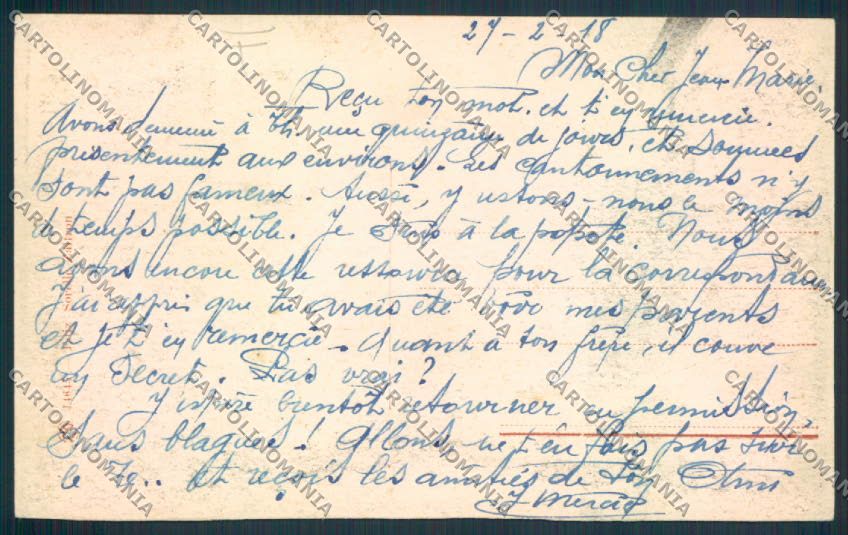 27-2-18
Mon Cher Jean Marie,
Reçu ton mot. et t'en remercie.
Avons demeuré à une quinzaine de jours, et sommes
présentement aux environs. Les cantonnements n'y
sont pas fameux. Aussi, y restons-nous le moins
de temps possible. Je suis à la popote. Nous
avons encore cette ressource pour la correspondance
J'ai appris que tu avais été voir mes parents
et je t'en remercie. Quant à ton frère, il couve
un secret. Pas vrai?
J'espère bientôt retourner en permission,
sans blagues! Allons ne t'en fais pas sur
le . . et reçois les amitiés de ton Ami